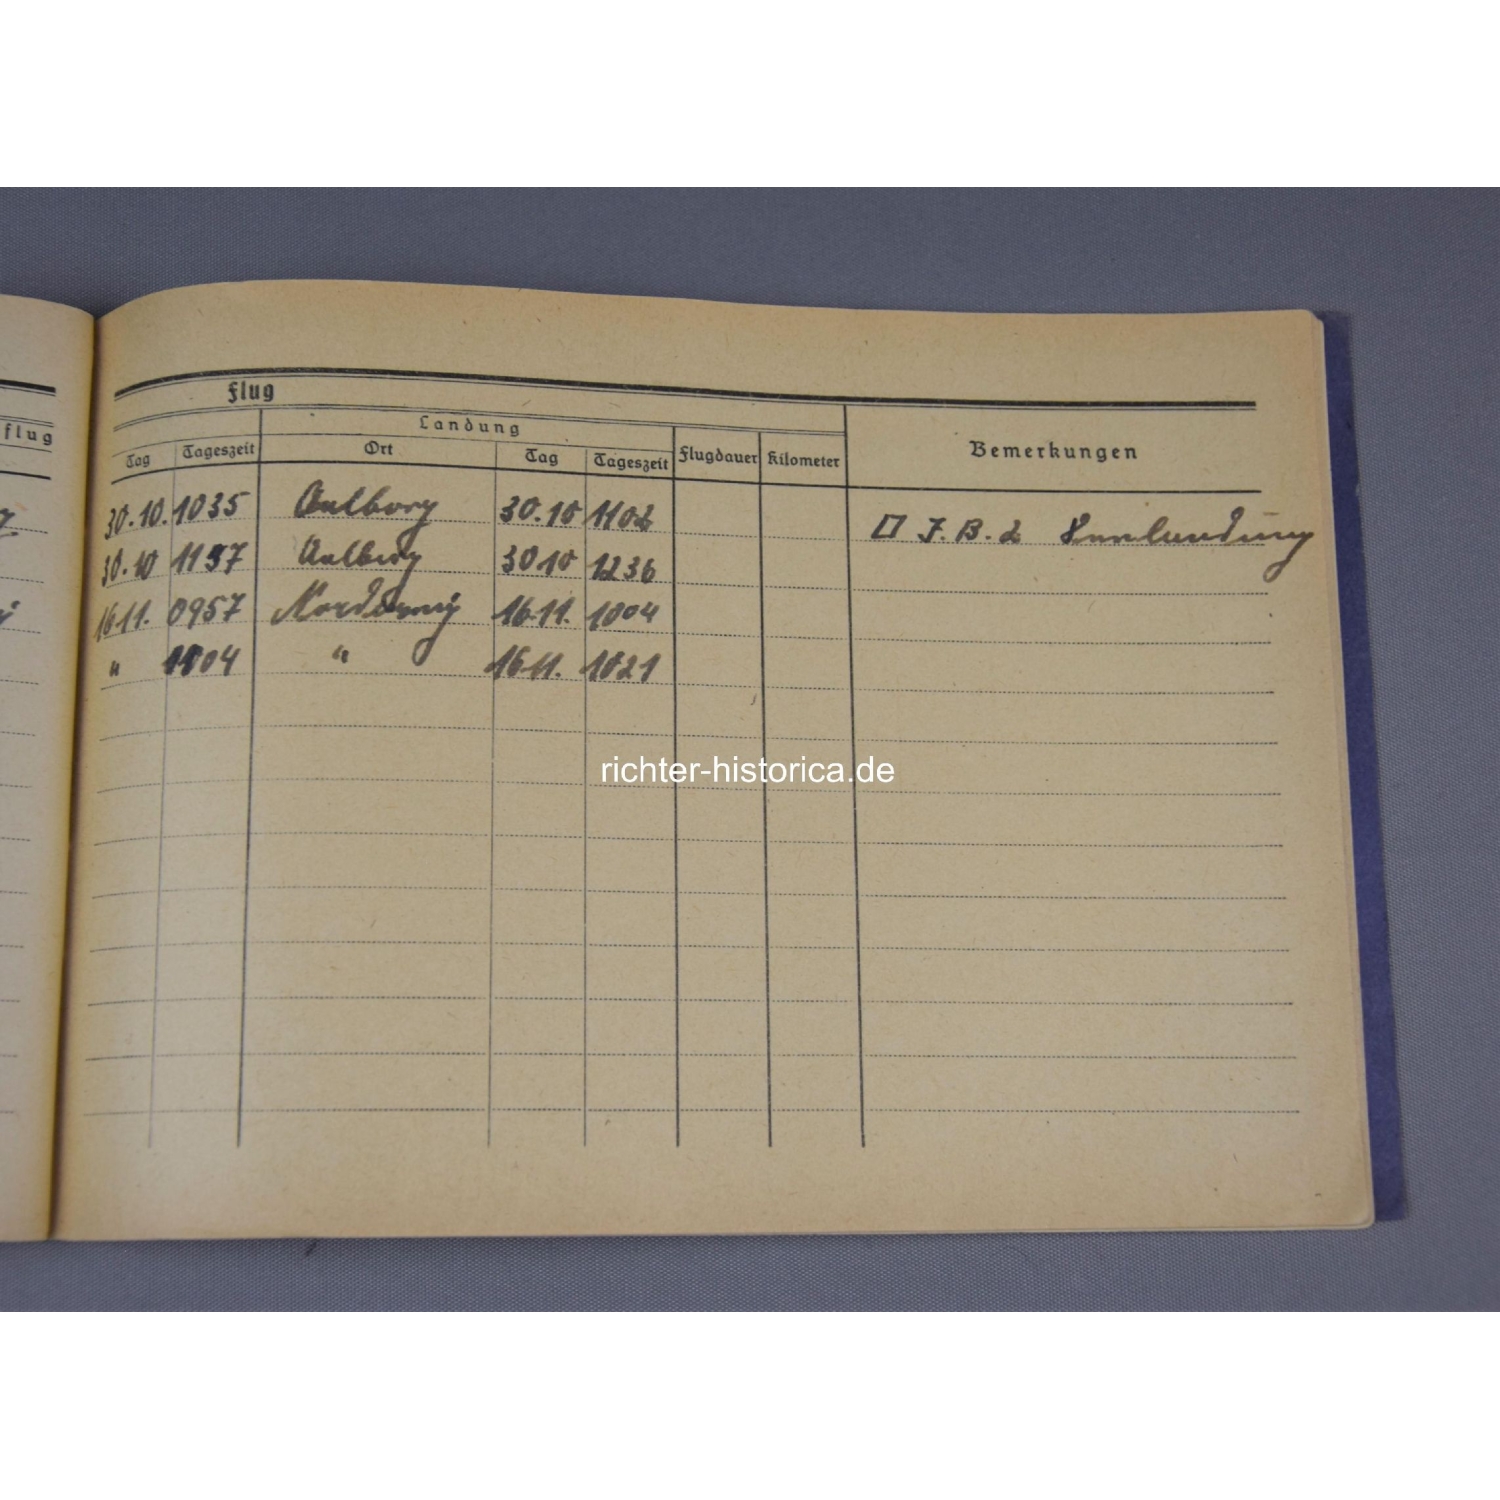 Flug
flug
Landung
Tag Tageszeit Ort Tag Tageszeit Flugdauer Kilometer Bemerkungen
30.10. 1035 Aalborg 30.10 1102
F.B.2
30.10 1157 Aalborg 30 10 1236
16 11. 0957 Norderney 16.11. 1004
" 1104 " 16.11. 1021
richter-historica.de